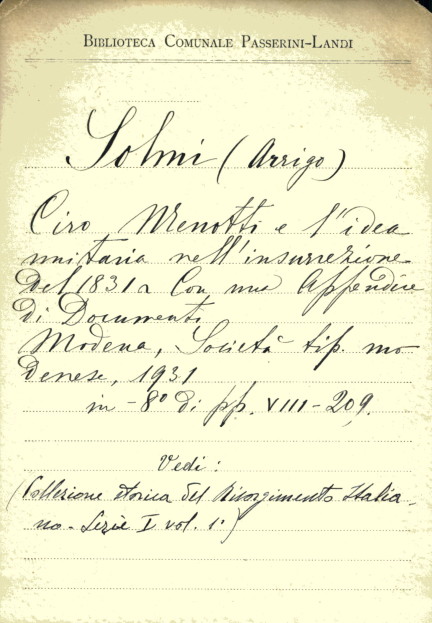 BIBLIOTECA COMUNALE PASSERINI-LANDI
Solmi (Arrigo)
Ciro Menotti e l'idea
unitaria nell'insurrezione
del 1831. Con una Appendice
di Documenti
Modena, Società tip. mo
denese, 1931
in-8º di pp. VIII-209.
Vedi:
(Collezione storica del Risorgimento Italia-
no - Serie I vol. 1º)